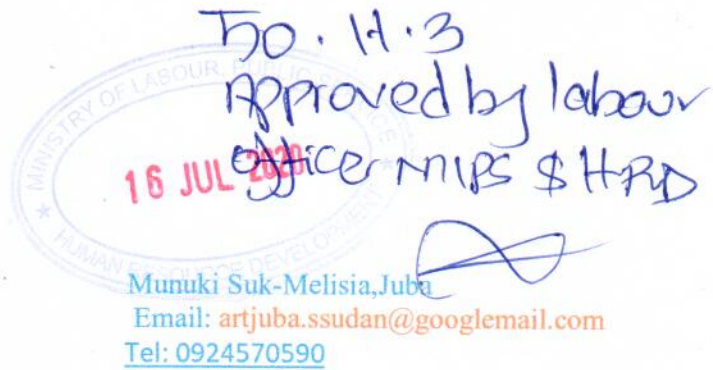 TO. H. 3
Approved by labour
office MLPS & HRD
MINISTRY OF LABOUR, PUBLIC SERVICE
16 JUL 2020
HUMAN RESOURCE DEVELOPMENT
Munuki Suk-Melisia,Juba
Email: artjuba.ssudan@googlemail.com
Tel: 0924570590